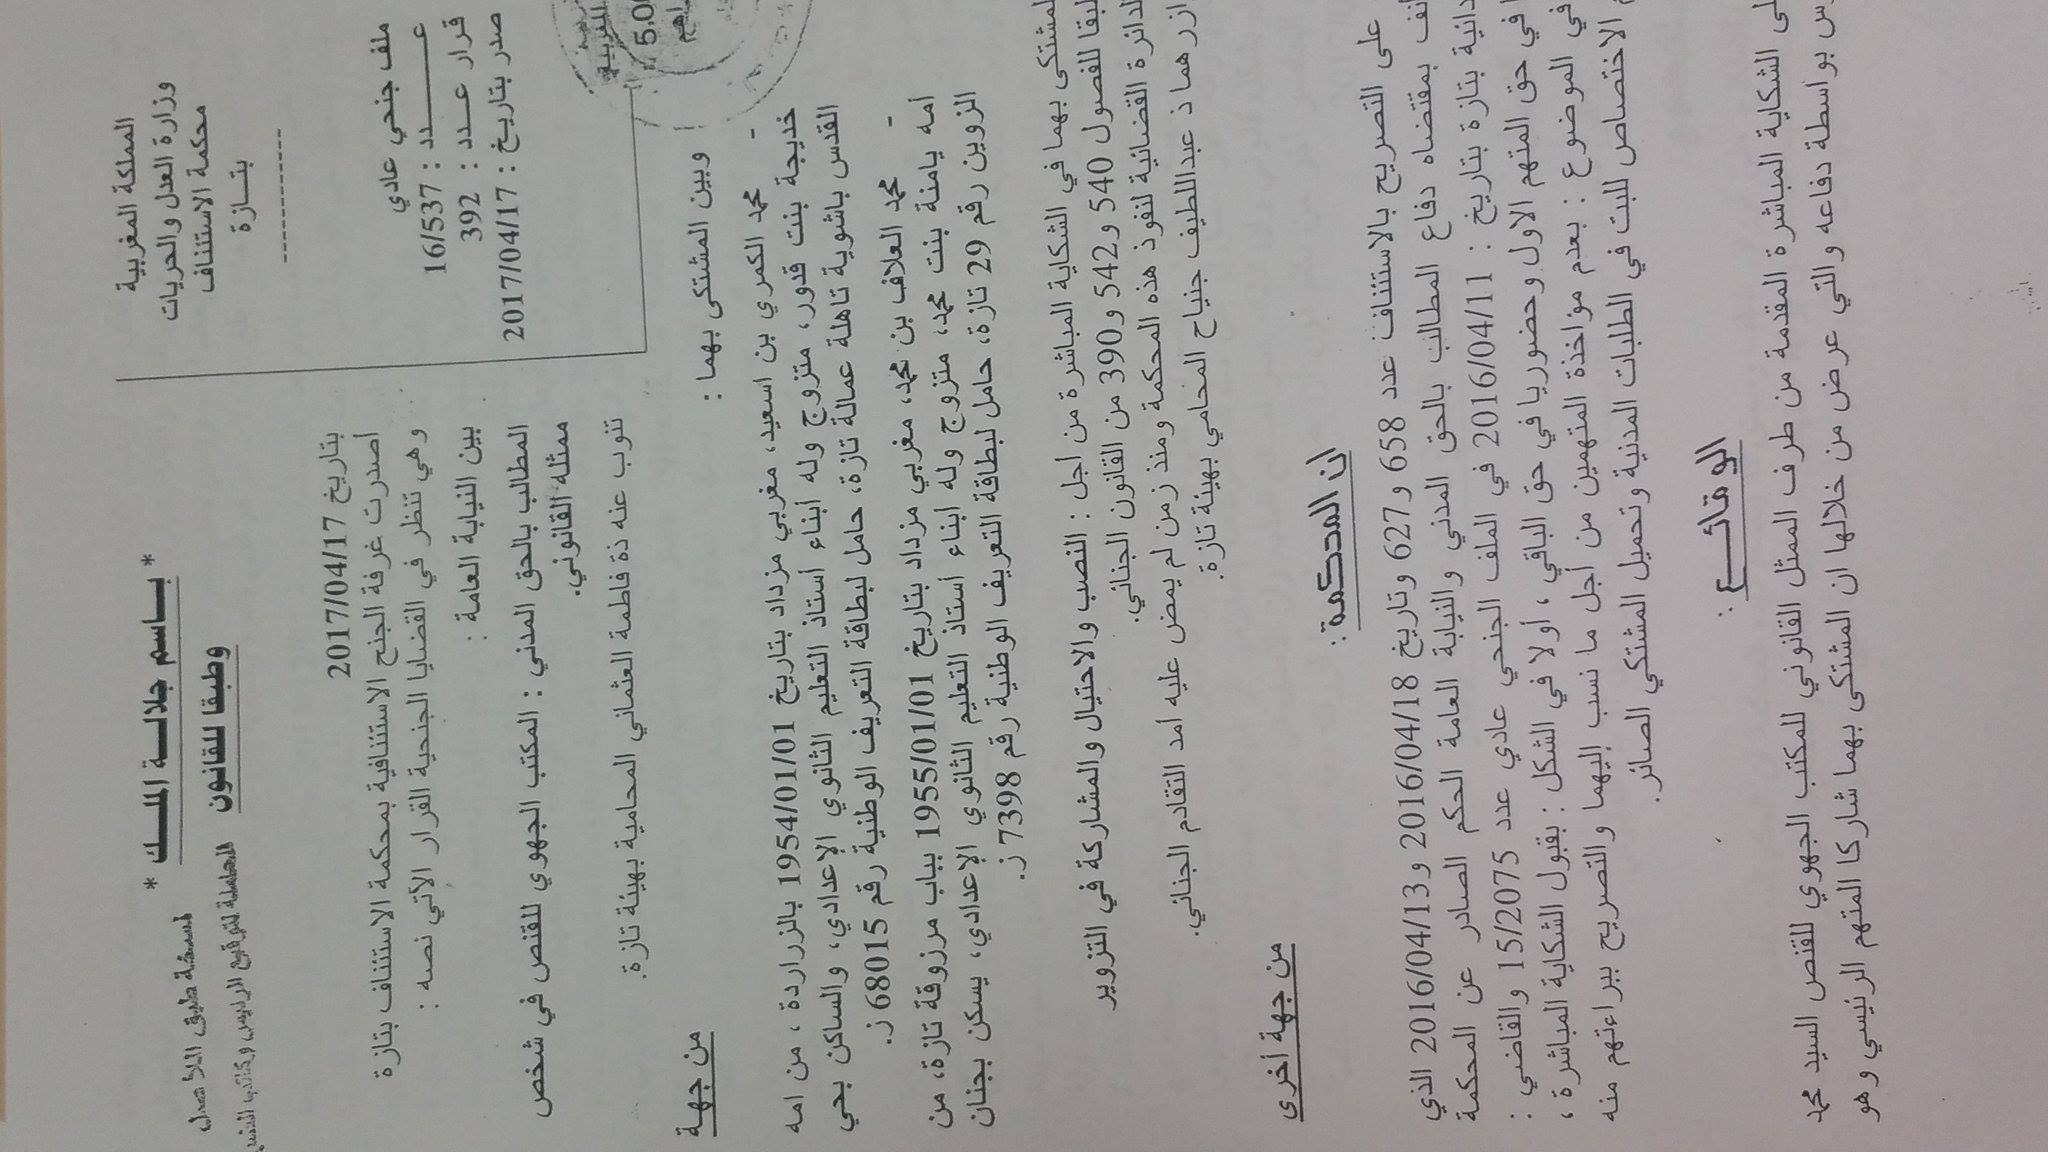 المملكة المغربية
وزارة العدل والحريات
محكمة الاستئناف
بتـــازة
-------------
ملف جنحي عادي
عـــــــدد : 16/537
قرار عــدد : 392
صدر بتاريخ : 2017/04/17
* بـــاسم جلالـــة الملـــك *
وطبقا للقانون
نسخة طبق الاصل
الحاملة لتوقيع الرئيس وكاتب
بتاريخ 2017/04/17
أصدرت غرفة الجنح الاستئنافية بمحكمة الاستئناف بتازة
وهي تنظر في القضايا الجنحية القرار الآتي نصه :
بين النيابة العامة :
المطالب بالحق المدني : المكتب الجهوي للقنص في شخص
ممثله القانوني.
تنوب عنه ذة فاطمة العثماني المحامية بهيئة تازة.
من جهة
وبين المشتكى بهما :
- محمد الكمري بن اسعيد، مغربي مزداد بتاريخ 1954/01/01 بالزراردة ، من امه
خديجة بنت قدور، متزوج وله ابناء أستاذ التعليم الثانوي الإعدادي، والساكن بحي
القدس باشوية تاهلة عمالة تازة، حامل لبطاقة التعريف الوطنية رقم 68015 ز.
- محمد العلاف بن محمد، مغربي مزداد بتاريخ 1955/01/01 بباب مرزوقة تازة، من
امه يامنة بنت محمد، متزوج وله ابناء أستاذ التعليم الثانوي الإعدادي، يسكن بجنان
الزوين رقم 29 تازة، حامل لبطاقة التعريف الوطنية رقم 7398 ز.
المشتكى بهما في الشكاية المباشرة من اجل : النصب والاحتيال والمشاركة في التزوير
طبقا للفصول 540 و542 و390 من القانون الجنائي.
الدائرة القضائية لنفوذ هذه المحكمة ومنذ زمن لم يمض عليه امد التقادم الجنائي.
ازرهما ذ عبداللطيف جنياح المحامي بهيئة تازة.
من جهة أخرى
ان المحكمة :
على التصريح بالاستئناف عدد 658 و627 وتاريخ 2016/04/18 و2016/04/13 الذي
بمقتضاه دفاع المطالب بالحق المدني والنيابة العامة الحكم الصادر عن المحكمة
بتازة بتاريخ : 2016/04/11 في الملف الجنحي عادي عدد 15/2075 والقاضي :
في حق المتهم الاول وحضوريا في حق الباقي ، أولا في الشكل : بقبول الشكاية المباشرة ،
في الموضوع : بعدم مؤاخذة المتهمين من أجل ما نسب إليهما والتصريح ببراءتهم منه
الاختصاص للبت في الطلبات المدنية وتحميل المشتكي الصائر.
الوقائـــع :
الشكاية المباشرة المقدمة من طرف الممثل القانوني للمكتب الجهوي للقنص السيد محمد
بواسطة دفاعه والتي عرض من خلالها ان المشتكى بهما شاركا المتهم الرئيسي وهو